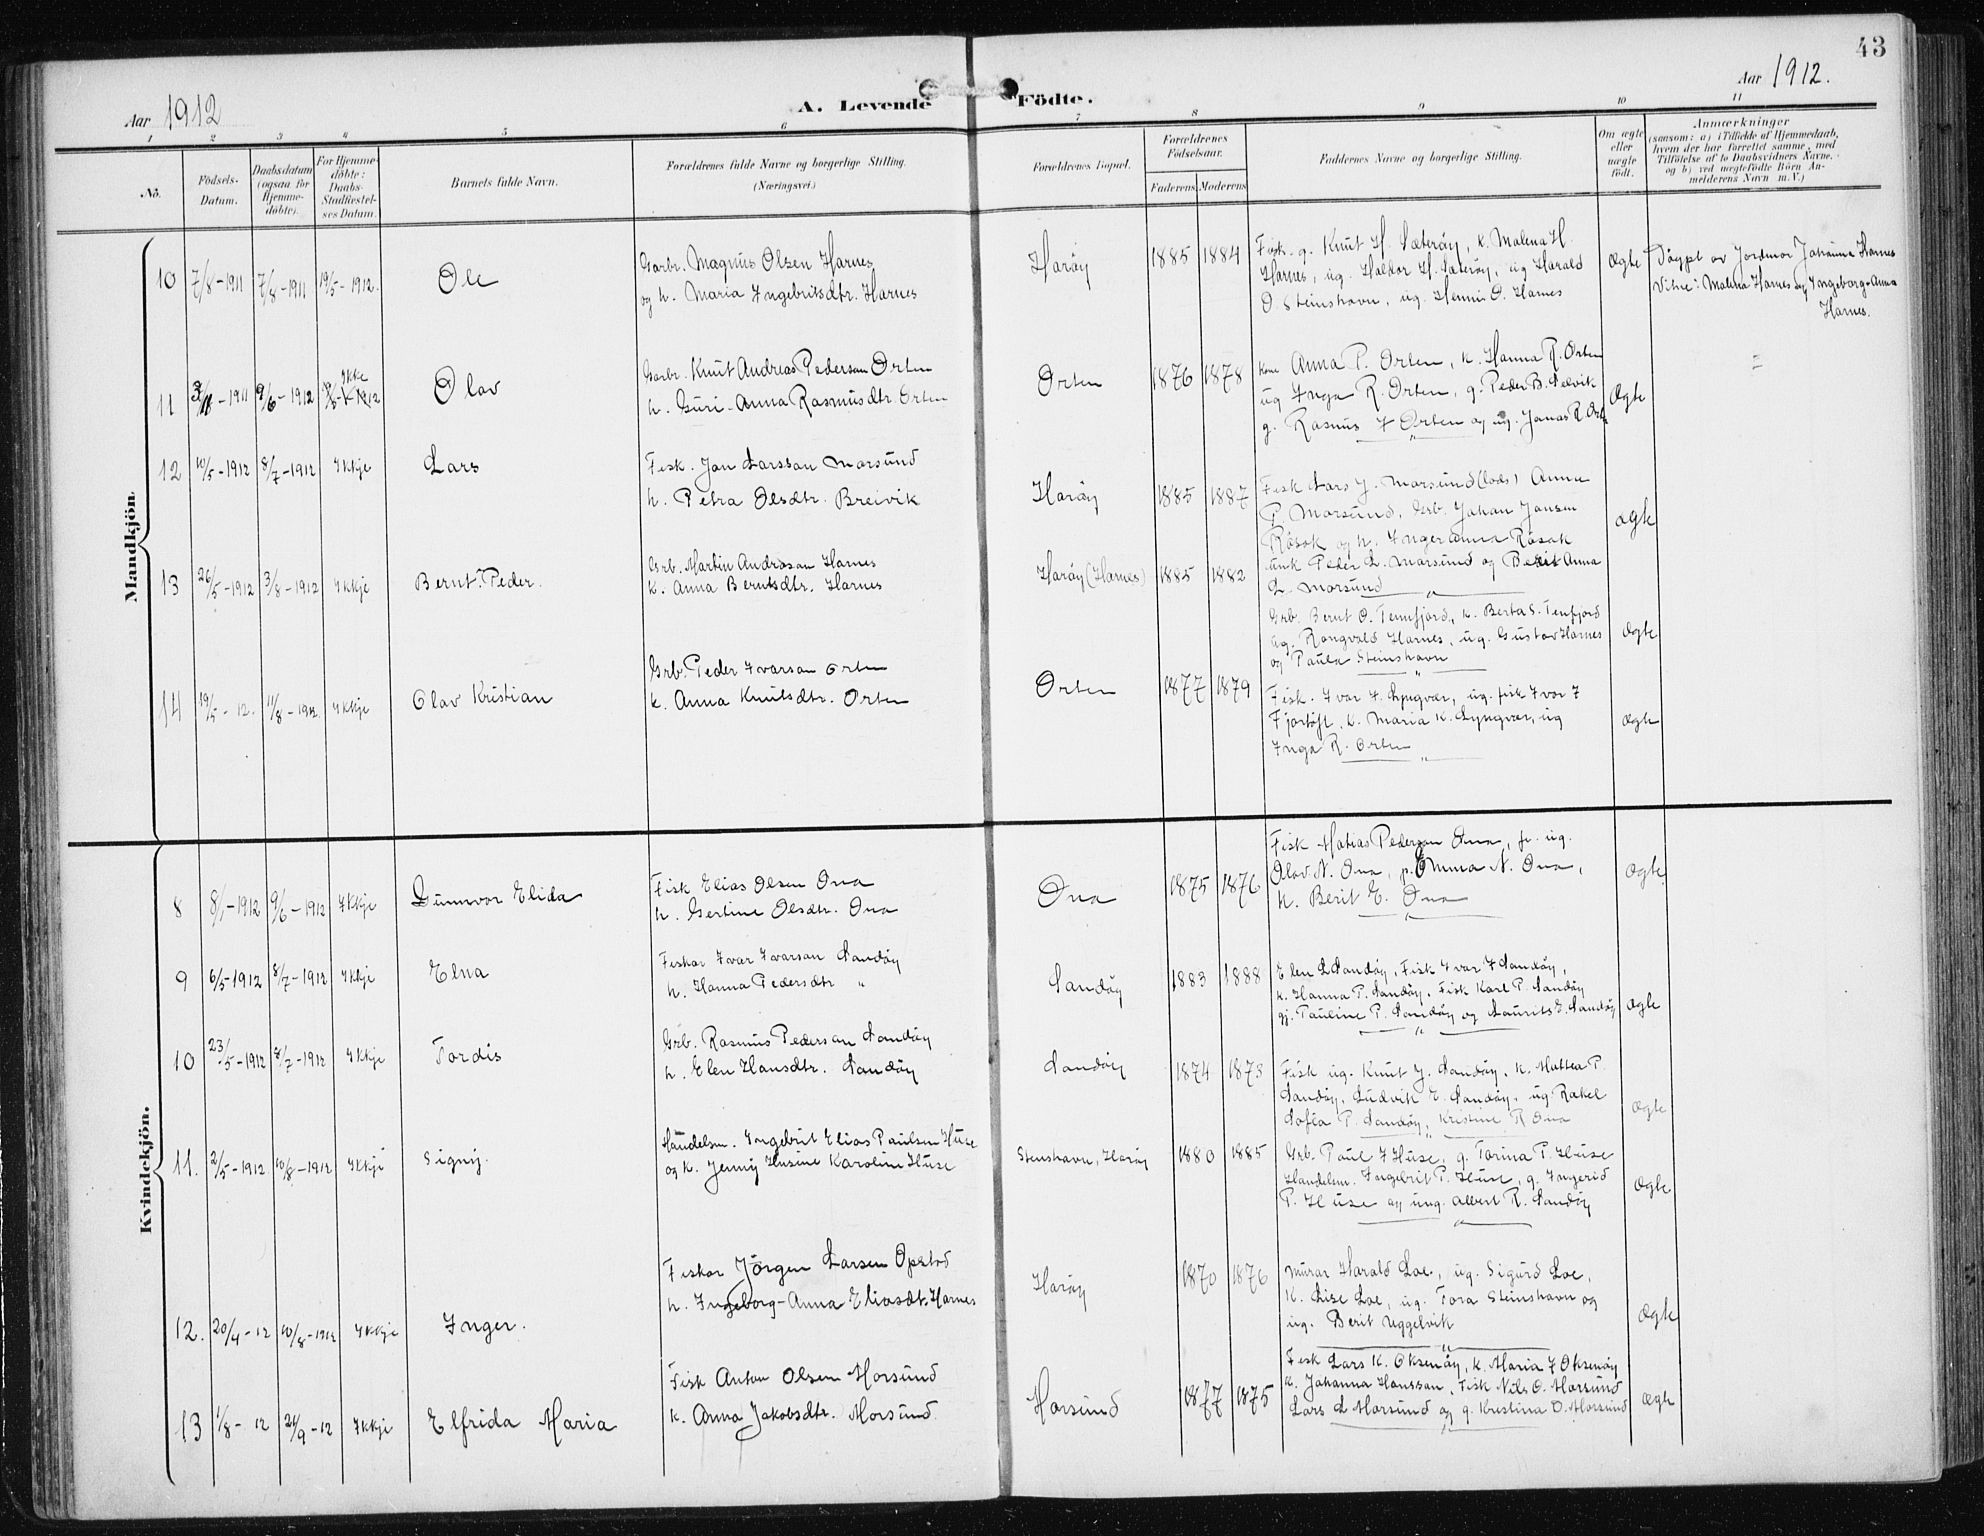 43
Aar 1912
A. Levende Födte.
Aar 1912.
1 2 3 4 5 6 7 8 9 10 11
No.
Födsels-Datum.
Daabsdatum (ogsaa for Hjemme-döbte).
For Hjemme-döbte: Daabs-Stadfæstel-ses Datum.
Barnets fulde Navn.
Forældrenes fulde Navne og borgerlige Stilling.
(Næringsvei.)
Forældrenes Bopæl.
Forældrenes Födselsaar.
Faderens Moderens
Faddernes Navne og borgerlige Stilling.
Om ægte eller uægte födt.
Anmærkninger
(saasom: a) i Tilfælde af Hjemmedaab,
hvem der har forrettet samme, med
Tilföielse af to Daabsvidners Navne,
og b) ved uægtefödte Börn An-
melderens Navn m. V.)
Mandkjön.
10 7/8-1911 7/8-1911 19/5-1912. Ole
Garbr. Magnus Olsen Harnes
og h. Maria Ingebritsdtr. Harnes
Harøy 1885 1884
Fisk. g. Knut H. Sæterøy, k. Malena H.
Harnes, ug. Haldor H. Sæterøy, ug Harald
O. Steinshavn, ug. Henni O. Harnes
Ægte
Døypt av Jordmor Johanna Harnes
Vitne: Malena Harnes og Ingeborg-Anna
Harnes.
11 -1911 9/6-1912 Ikke Olav
Garbr. Knut Andreas Pederson Orten
h. Guri-Anna Rasmusdtr Orten
Orten 1876 1878
Kone Anna P. Orten, k. Hanna R. Orten
ug Inga R. Orten, g. Peder B. Selvik
g. Rasmus I Orten og ug. Jonas R. Ort
Ægte
12 10/5-1912 8/7-1912 Ikkje Lars
Fisk. Jon Larsson Morsund
h. Petra Olsdtr. Breivik
Harøy 1885 1887
Fisk Lars J. Morsund (lods) Anne
P. Morsund, Grb. Johan Jonsen
Røsok og h. Inger Anna Røsok
unk Peder L. Morsund og Berit Anna
L. Morsund
ægte
13 26/5-1912 3/8-1912 Ikkje Bernt. Peder.
Grb. Martin Andrəsan Harnes
k. Anna Berntsdtr. Harnes
Harøy (Harnes) 1885 1882
Grb. Bernt O. Tennfjord, k. Berta S. Tenfjord
ug. Rongvald Harnes, ug. Gustav Harnes
og Paula Steinshavn
Ægte
14 19/5-12. 11/8-1912. Ikkje Olav Kristian
Grb. Peder Ivarson Orten
k. Anna Knutsdtr. Orten
Orten 1877 1879
Fisk. Ivar I. Lyngvær, ug. fisk Ivar I
Fjortoft, k. Maria K. Lyngvær, ug
Inga R. Orten
Ægte
Kvindekjön.
8 8/1-1912 9/6-1912 Ikkje Gunnvor Elida
Fisk Elias Olsen Ona
h. Gertine Olsdtr. Ona
Ona 1875 1876
Fisk Matias Pederson Ona, ug.
Olav N. Ona, p. Emma N. Ona,
k. Berit E. Ona
Ægte
9 6/5-1912 8/7-1912 Ikkje Elna
Fiskar Ivar Ivarson Sandøy
h. Hanna Pedersdtr "
Sandøy 1883 1888
Elen L Sandøy, Fisk Ivar I Sandøy,
k. Hanna P. Sandøy, Fisk Karl P. Sandøy
gj. Pauline P. Sandøy og Laurits E. Sandøy
Ægte
10 23/5-1912 8/7-1912 Ikkje Tordis
Grb. Rasmus Pederson Sandøy
h. Elen Hansdtr. Sandøy
Sandøy 1874 1873
Fisk ug. Knut J. Sandøy, k. Mattea P.
Sandøy, Ludvik E. Sandøy, ug. Rakel
Sofia P. Sandøy, Kristine R Ona
Ægte
11. 2/5-1912 10/8-1912 Ikkje Signy.
Handelsm. Ingebrit Elias Paulsen Huse
og k. Jenny Husine Karoline Huse
Stenshavn, Harøy 1880 1885
Grb. Paul I Huse, g. Torina P. Huse
Handelsm. Ingebrit P. Huse, g. Ingerid
P. Huse og ung. Albert R. Sandøy
Ægte
12. 20/4-12 10/8-1912 Ikkje Inger.
Fiskar Jörgen Larsen Opstad
h. Ingeborg-Anna Eliasdt. Harnes
Harøy 1870 1876
Murar Harald Loe, ug. Sigurd Loe,
k. Lise Loe, ug. Tora Steinshavn og
ug. Berit Uggelvik
Ægte
13 1/8-12 21/9-12 Ikkje Elfrida Maria
Fisk Anton Olsen Morsund
k. Anna Jakobsdtr. Morsund
Morsund 1877 1875
Fisk Lars K. Oksenøy, k. Maria I Oksenøy
k. Johanna Hansson, Fisk Nils O. Morsund
Lars L Morsund og g. Kristina O. Morsund
Ægte